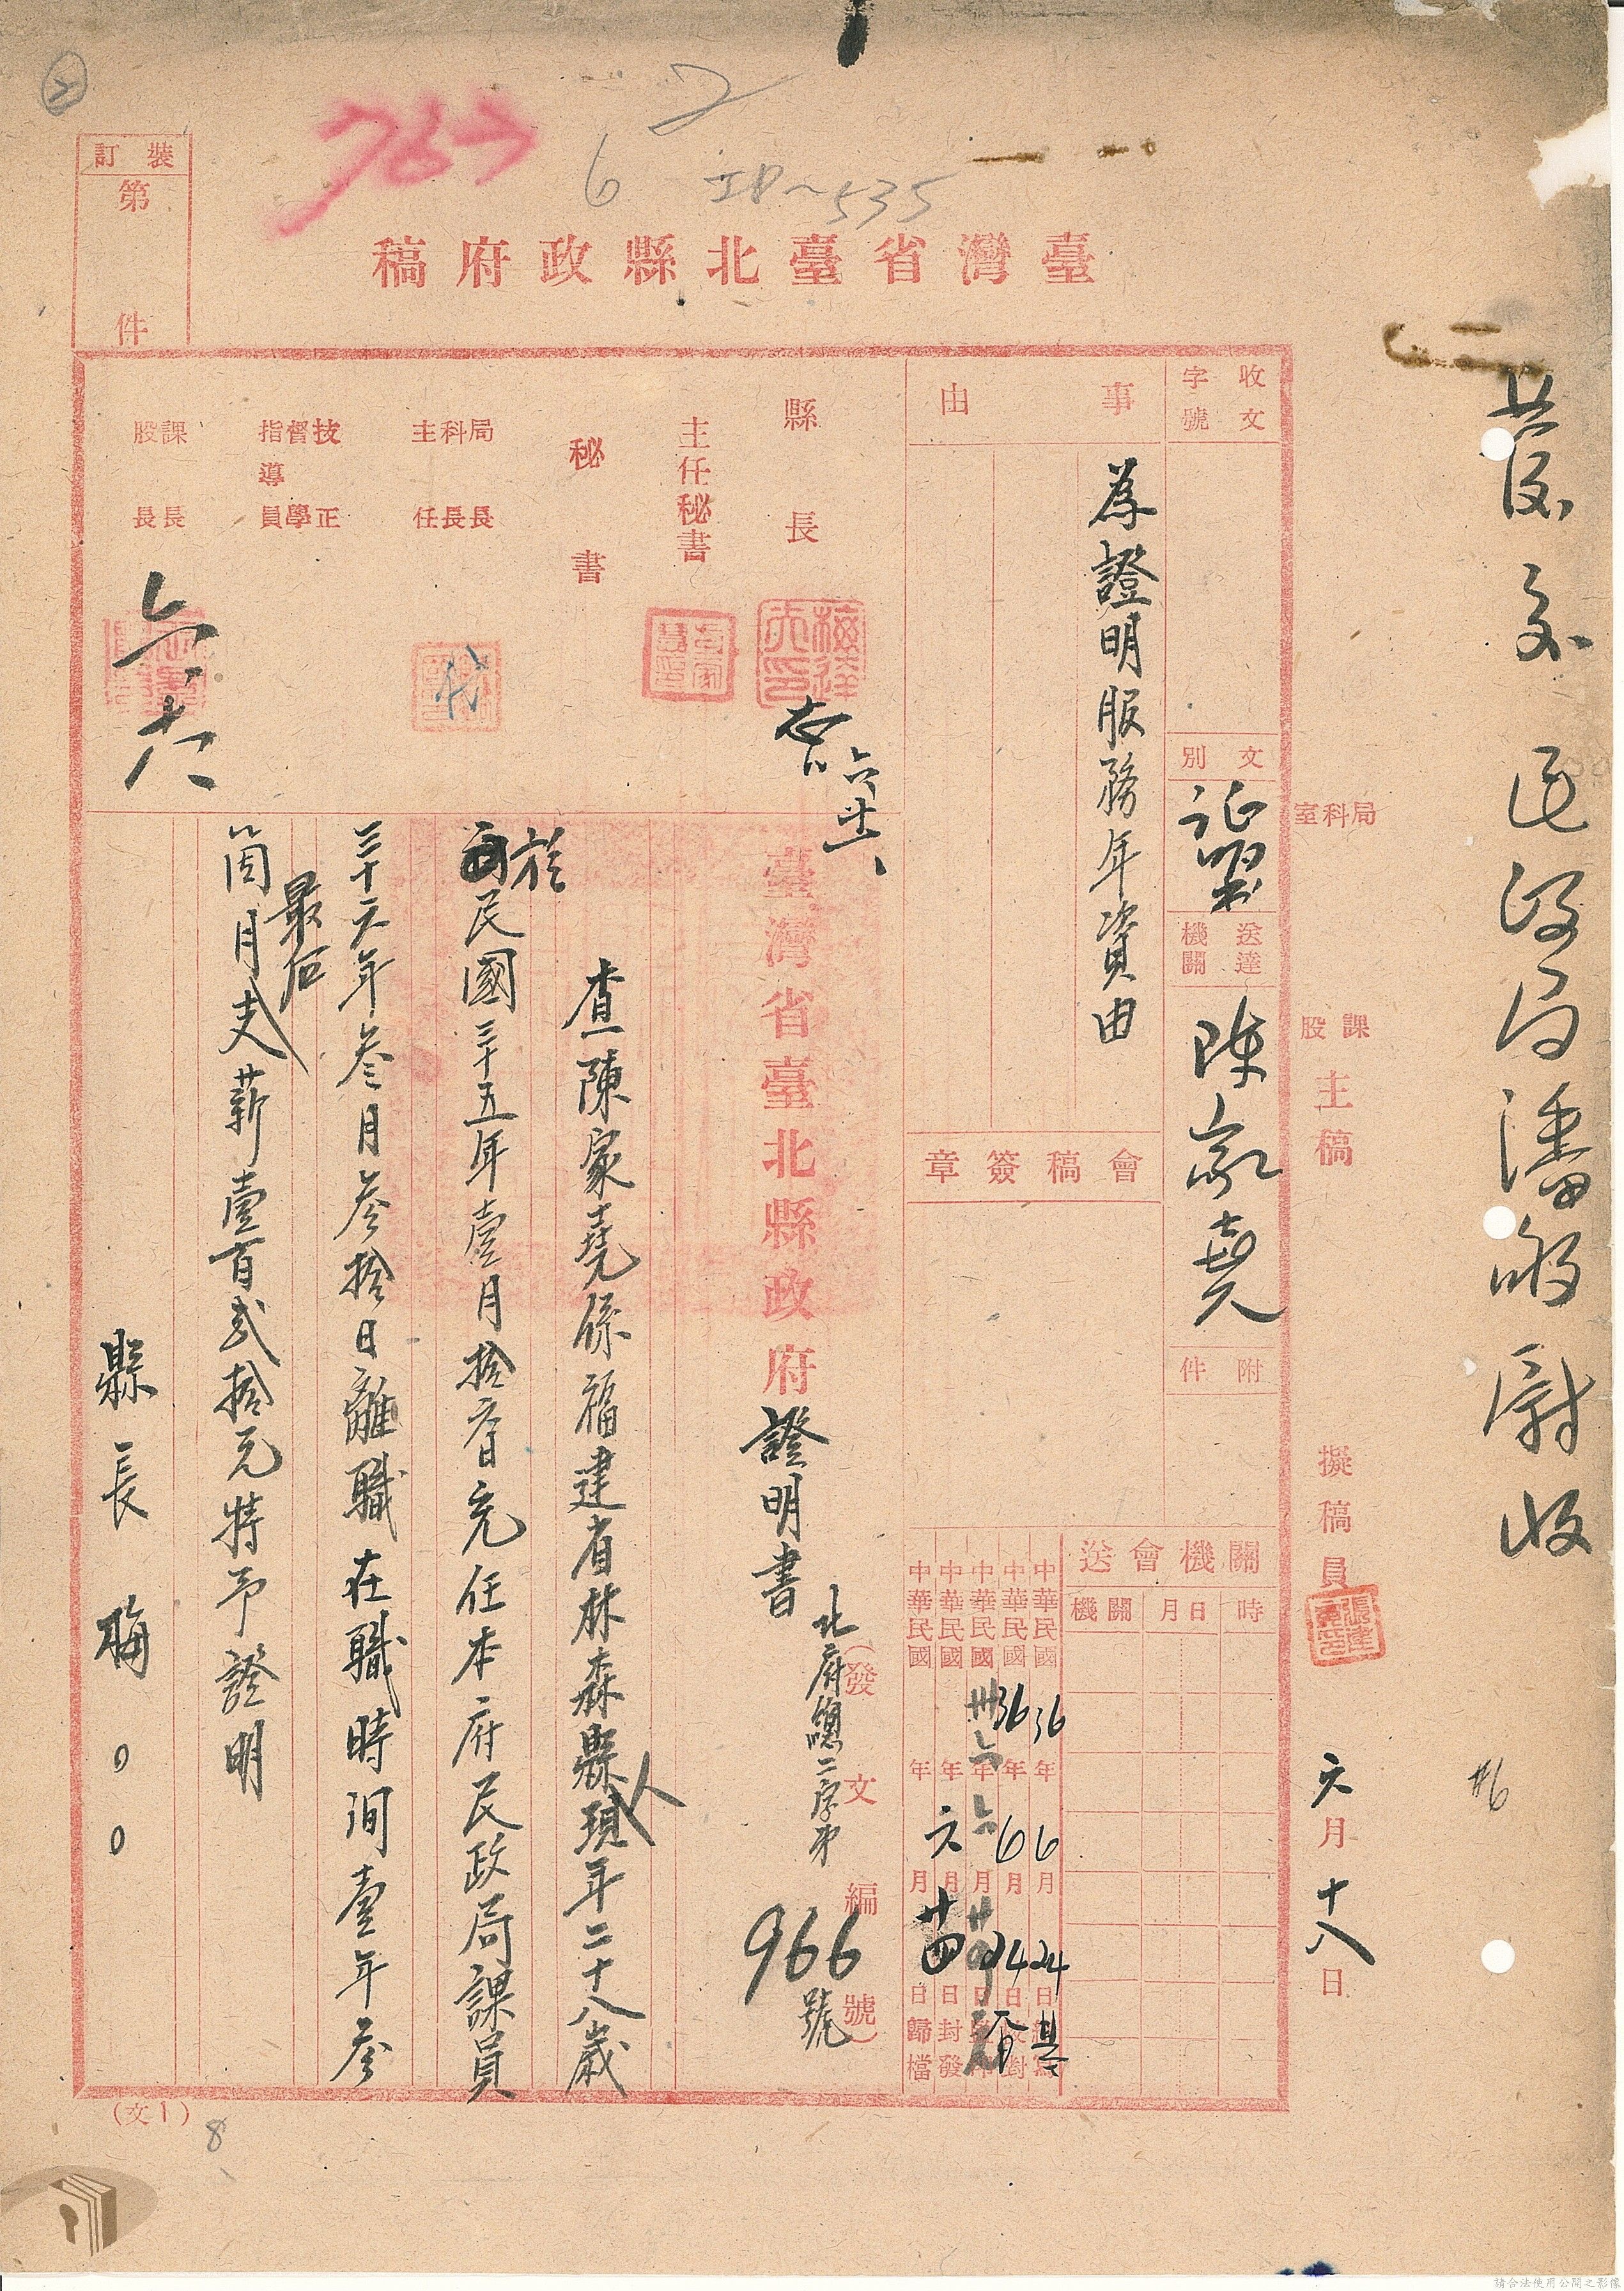 發交民政局潘㪇尉收
臺灣省臺北縣政府稿
裝訂
第 件
局科室
課股
主稿
擬稿員
六月十八日
收文字號
文別
證明書
送達機關
陳家堯
附件
事由
為證明服務年資由
會稿簽章
送會機關
機關
月日
時
中華民國36年6月24日
中華民國36年6月24日
中華民國卅六年六月廿四日
中華民國 年六月廿四日封發
中華民國 年 月 日歸檔
縣長
六廿一
主任秘書
秘書
局科主
長長任
代
技督指
導
正學員
課股
長長
六、十八
臺灣省臺北縣政府證明書
(發文編號)
北府總二字第966號
查陳家堯係福建省林森縣人現年二十八歲
於民國三十五年壹月拾叁日充任本府民政局課員
三十六年叁月叁拾日離職在職時間壹年叁
箇月最后支薪壹百貳拾元特予證明
縣長 梅〇〇
(文1)
8
2
6
ID~535
請合法使用公開之影像